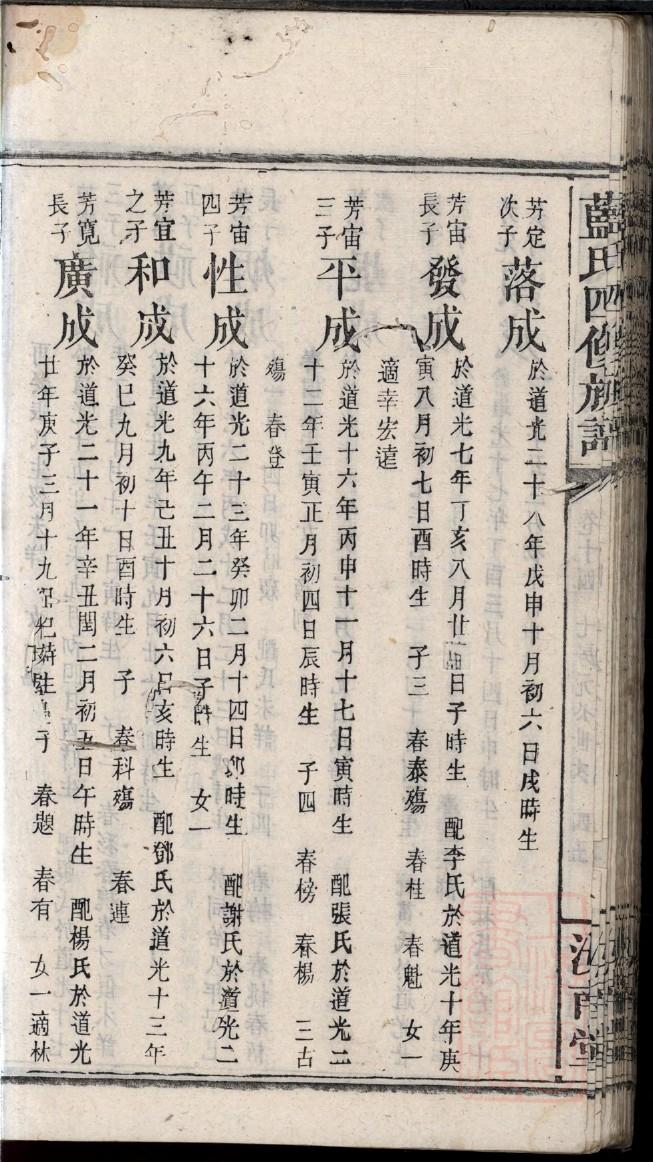 藍氏四修族譜
芳定次子落成於道光二十八年戊申十月初六日戌時生
芳宙長子發成於道光七年丁亥八月廿日子時生 配李氏於道光十年庚
寅八月初七日酉時生 子三 春泰殤 春桂 春魁 女一
適幸宏遠
芳宙三子平成於道光十六年丙申十一月十七日寅時生 配張氏於道光二
十二年壬寅正月初四日辰時生 子四 春榜 春楊 三古
殤 春登
芳宙四子性成於道光二十三年癸卯二月十四日卯時生 配謝氏於道光二
十六年丙午二月二十六日子時生 女一
芳宜之子和成於道光九年己丑十月初六日亥時生 配鄧氏於道光十三年
癸巳九月初十日酉時生 子 春科殤 春連
芳寬長子廣成於道光二十一年辛丑閏二月初五日午時生 配楊氏於道光
廿年庚子三月十九 時生 子 春題 春有 女一適林